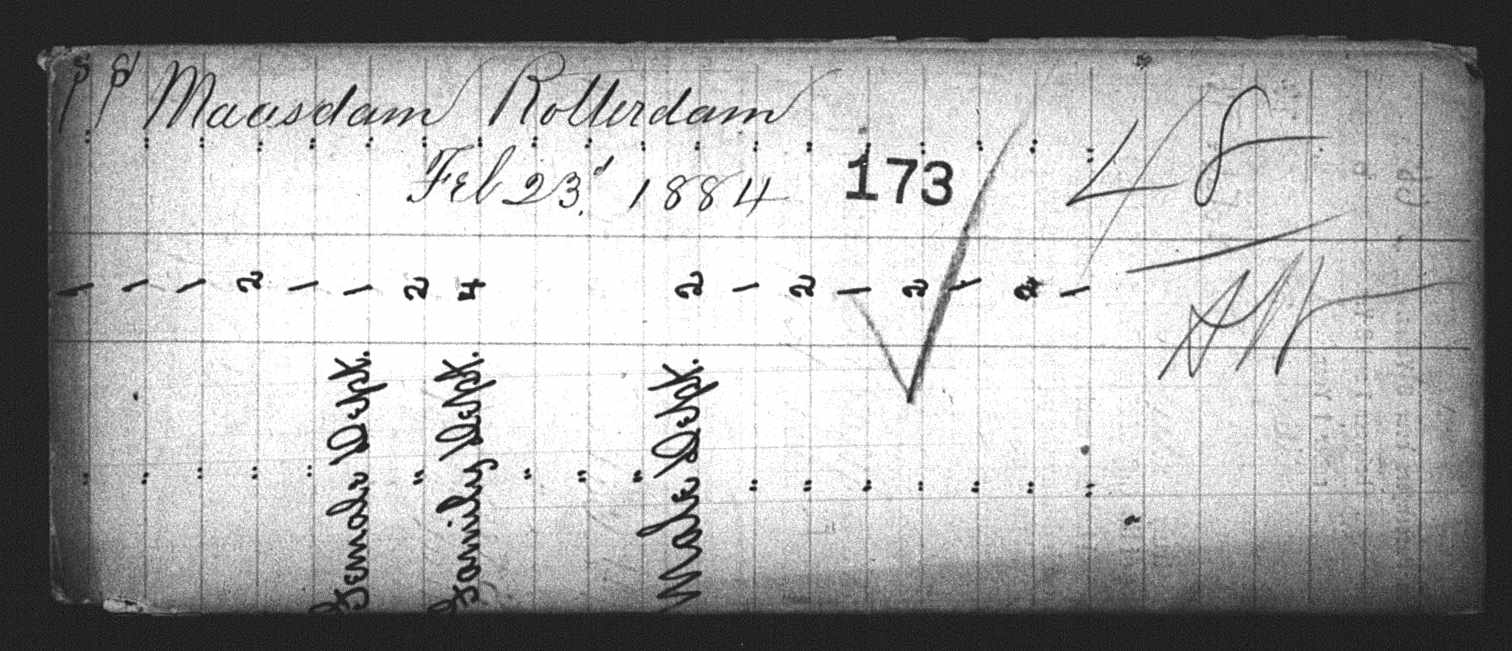 SS Maasdam Rotterdam
Feb 23d 1884
173
48
1 1 1 2 1 1 2 4 2 1 2 1 2 1 2 1
Female Dept.
Family Dept.
Male Dept.